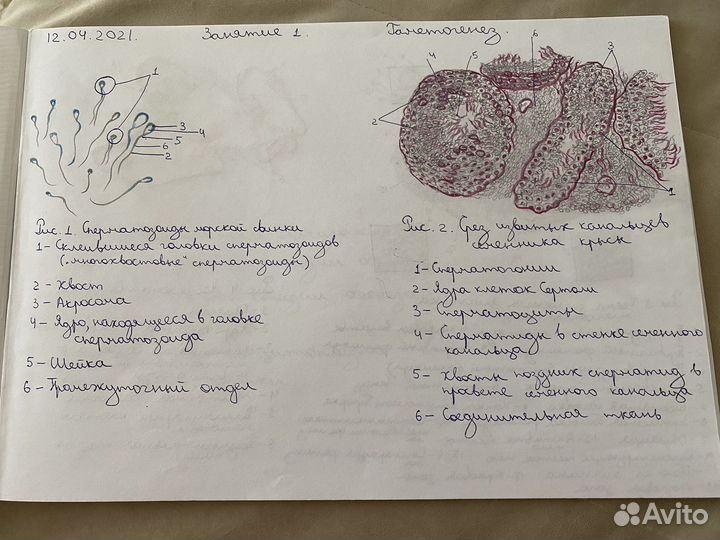 12.04.2021. Занятие 1. Гаметогенез.
1
3
4
5
6
2
4
5
6
3
2
1
Рис. 1. Сперматозоиды морской свинки
1 – Склеившиеся головки сперматозоидов
(„многохвостовые" сперматозоиды)
2 – Хвост
3 – Акросома
4 – Ядро, находящееся в головке
сперматозоида
5 – Шейка
6 – Промежуточный отдел
Рис. 2. Срез извитых канальцев
семенника крысы
1 – Сперматогонии
2 – Ядра клеток Сертоли
3 – Сперматоциты
4 – Сперматиды в стенке семенного
канальца
5 – Хвосты поздних сперматид в
просвете семенного канальца
6 – Соединительная ткань
Avito